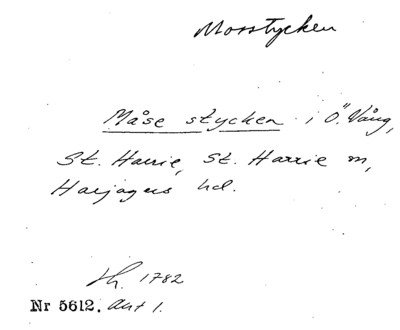 Mosstycken
Måse stycken i Ö. Vång,
St. Harrie, St. Harrie sn,
Harjagers hd.
Lh. 1782
Nr 5612. Akt 1.